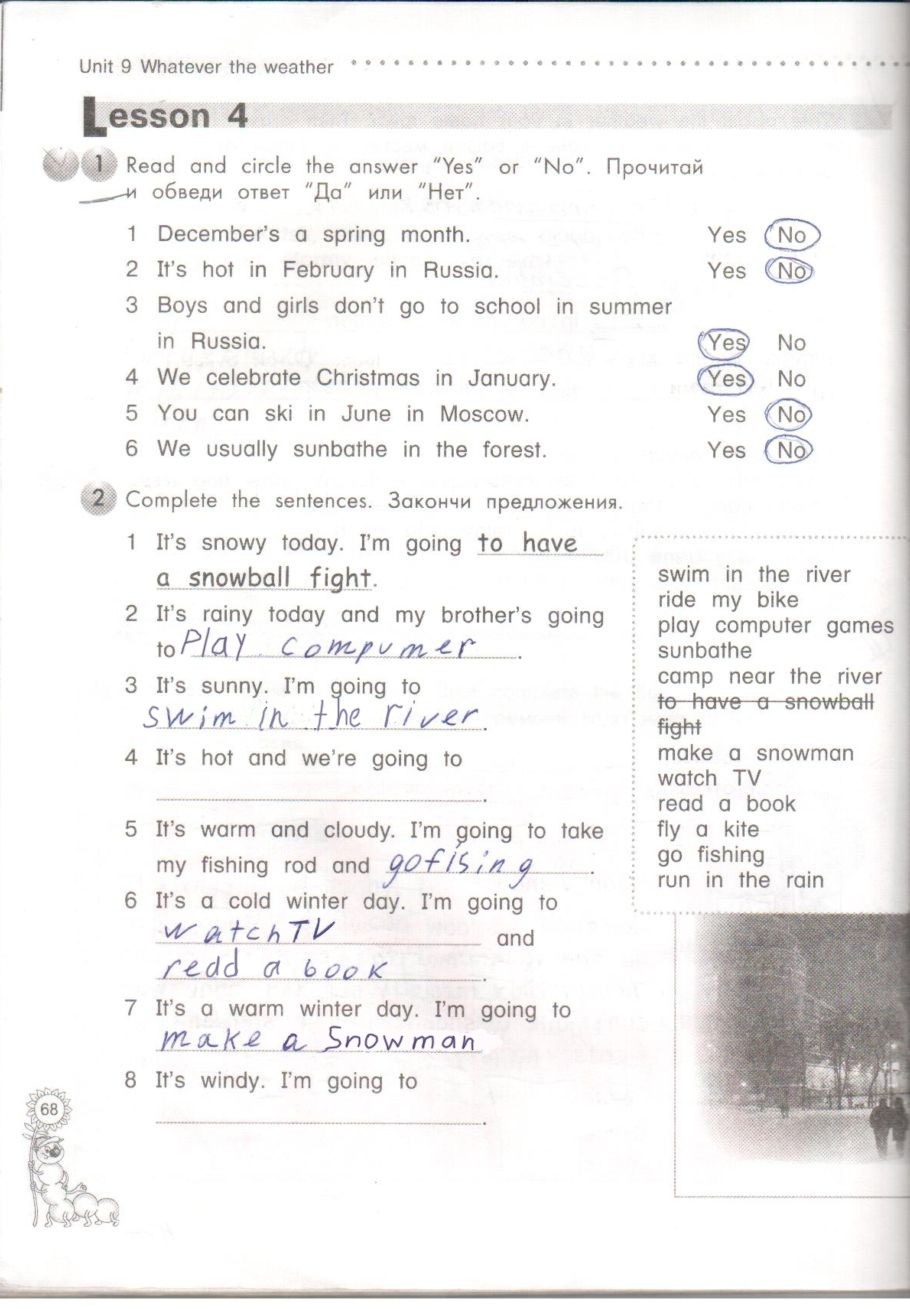 Unit 9 Whatever the weather
Lesson 4
1 Read and circle the answer "Yes" or "No". Прочитай
и обведи ответ "Да" или "Нет".
1 December's a spring month. Yes No
2 It's hot in February in Russia. Yes No
3 Boys and girls don't go to school in summer
in Russia. Yes No
4 We celebrate Christmas in January. Yes No
5 You can ski in June in Moscow. Yes No
6 We usually sunbathe in the forest. Yes No
2 Complete the sentences. Закончи предложения.
1 It's snowy today. I'm going to have
a snowball fight.
2 It's rainy today and my brother's going
to Play compumer.
3 It's sunny. I'm going to
swim in the river.
4 It's hot and we're going to
5 It's warm and cloudy. I'm going to take
my fishing rod and go fising.
6 It's a cold winter day. I'm going to
watch TV and
redd a book.
7 It's a warm winter day. I'm going to
make a Snowman
8 It's windy. I'm going to
swim in the river
ride my bike
play computer games
sunbathe
camp near the river
to have a snowball
fight
make a snowman
watch TV
read a book
fly a kite
go fishing
run in the rain
68